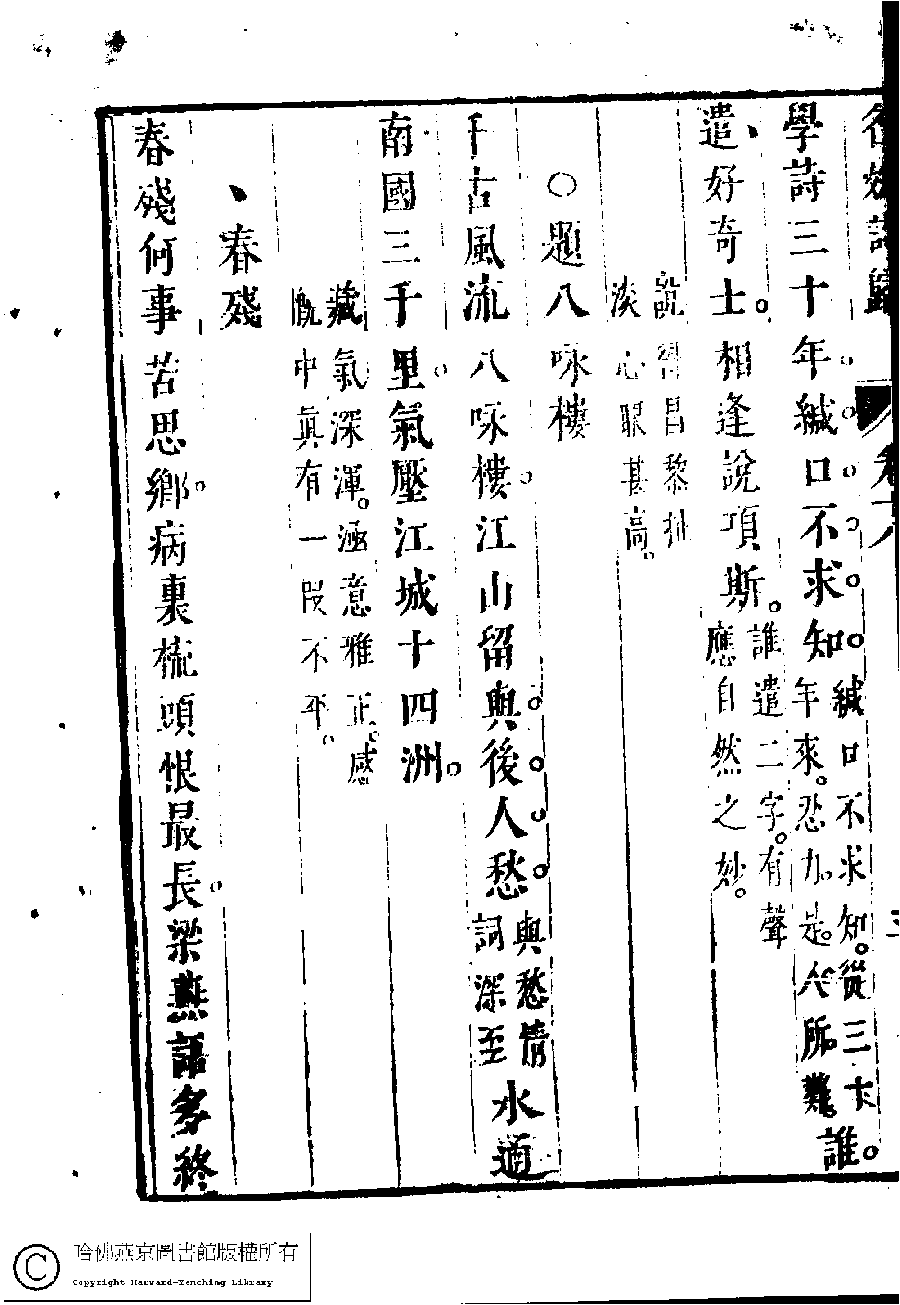 學詩三十年緘口不求知緘口不求知從三十
年來忍力是人所難誰
遣好奇士相逢說項斯誰遣二字有聲
應自然之妙
淡心眼甚高
○題八咏樓
千古風流八咏樓江山留與後人愁與愁情
詞深至水通
南國三千里氣壓江城十四洲
藏氣深渾涵意雅正感
慨中真有一段不平
春殘
春殘何事苦思鄉病裏梳頭恨最長梁燕語多終
哈佛燕京圖書館版權所有
Copyright Harvard-Yenching Library